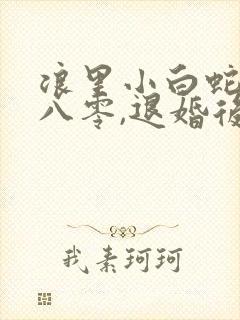 浪里小白蛇
八零,退婚後
我素珂珂